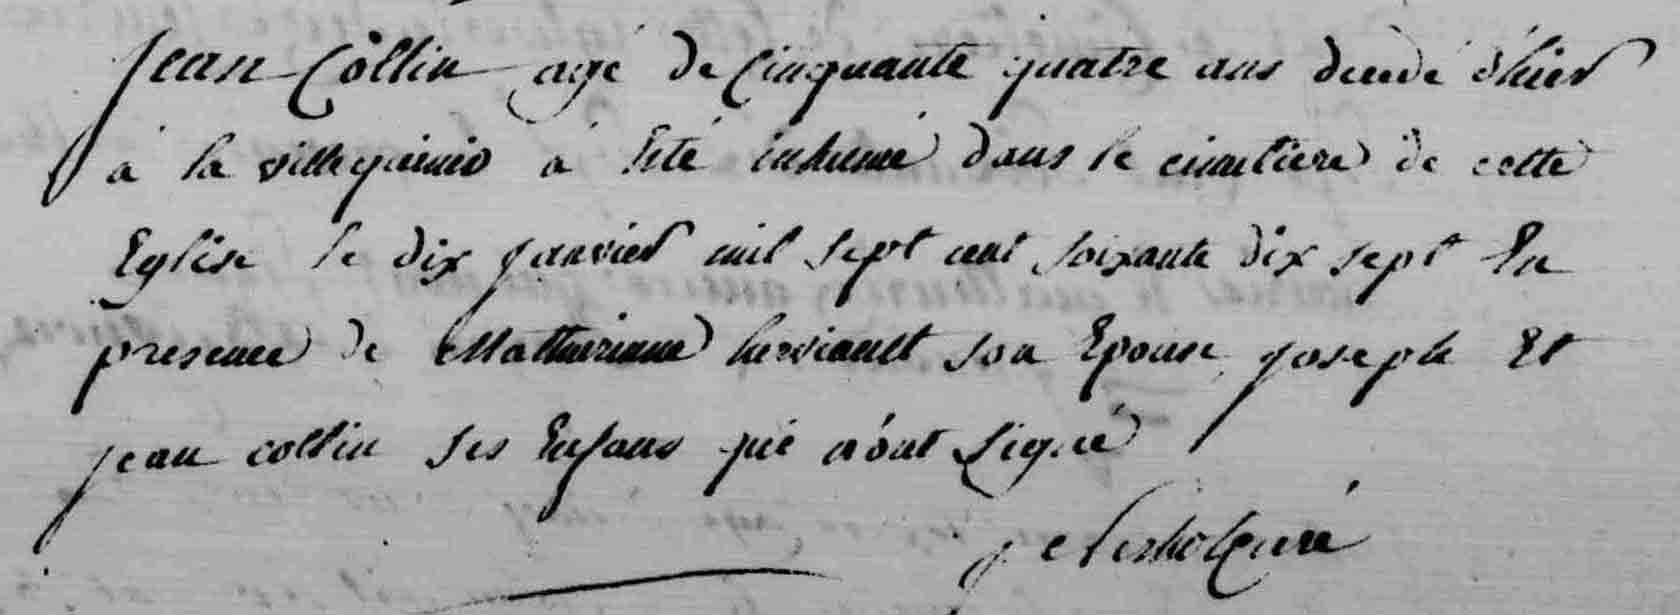 Jean Collin agé de Cinquante quatre ans decedé d'hier
à la ville quinio a Eté inhumé dans le cimetiere de cette
Eglise le dix janvier mil sept cent soixante dix sept En
presence de Mathurinne herviault son Epouse, joseph Et
jean collin ses Enfans qui n'ont Signé
curé